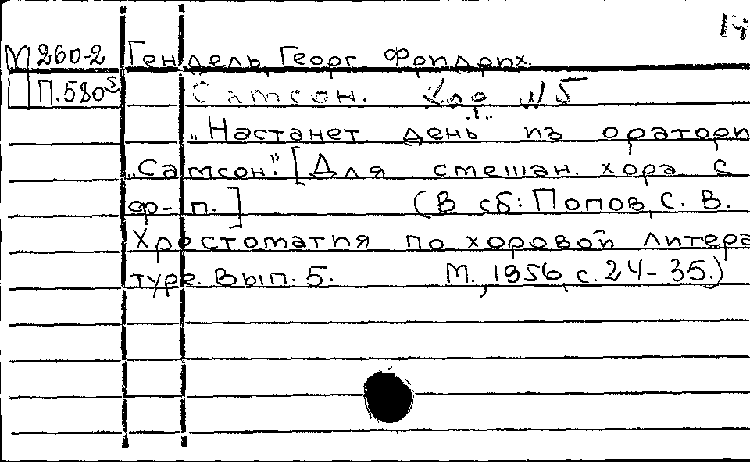 14
М 260-2 Гендель, Георг Фридрих.
П.580⁵ Самсон. Хор №5
"Настанет день" из оратори
"Самсон." [Для смешан. хора с
ф-п.] (В сб: Попов, С. В.
Хрестоматия по хоровой литера
туре. Вып. 5. М., 1956, с. 24-35.)